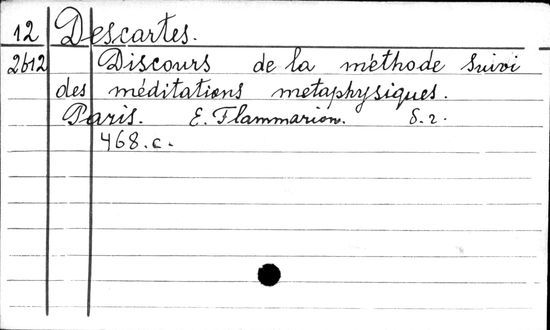 12 Descartes.
2612 Discours de la méthode suivi
des méditations metaphysiques.
Paris. E. Flammarion. S. r.
468. c.